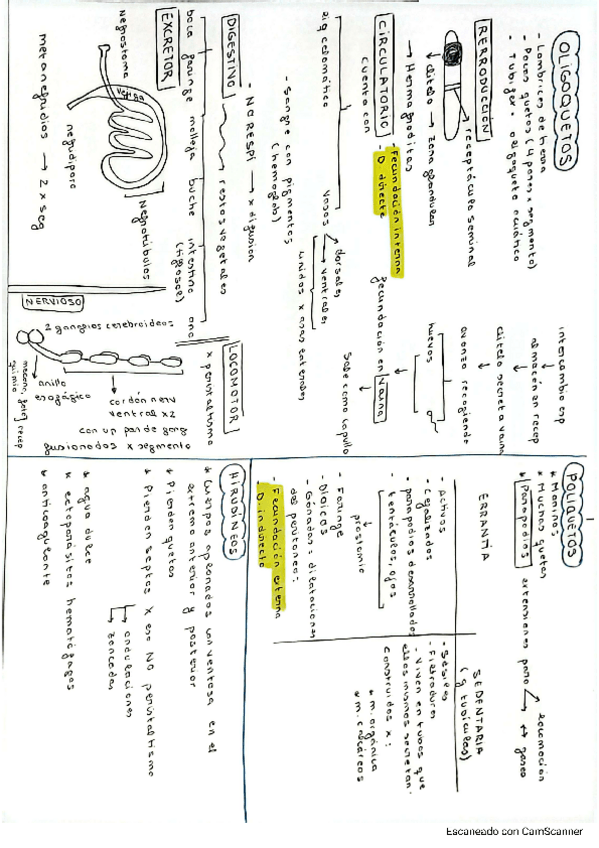 OLIGOQUETOS
- Lombrices de tierra
- Pocas quetas (4 pares x segmento)
- Tubifex → oligoqueto acuático
REPRODUCCIÓN
receptáculo seminal
↓ clitelo → zona glandular
→ Hermafroditas
- Fecundación interna
- D. directo
intercambio esp
almacén en recep
clitelo secreta vaina
avanza recogiendo
huevos
fecundación en vaina
sale como capullo
CIRCULATORIO
cuenta con
vasos
dorsales
ventrales
unidos x asas laterales
- Sangre con pigmentos
(hemoglob)
- NO RESPI → x difusión
DIGESTIVO
restos vegetales
boca faringe molleja buche intestino ano
(tiflosol)
EXCRETOR
Nefrostoma
Nefrotúbulos
nefridioporo
metanefridios → 2 x seg
LOCOMOTOR
x peristaltismo
NERVIOSO
2 ganglios cerebroideos
anillo
esofágico
cordón nerv
ventral x2
con un par de gang
fusionados x segmento
POLIQUETOS
* Marinos
* Muchas quetas
* Parapodios extensiones para
locomoción
↔ gases
ERRANTIA
- Activos
- Cefalizados
- parapodios desarrollados
- tentáculos, ojos
prostomio
- Faringe
- Dioicos
- Gónadas: dilataciones
del peritoneo:
- Fecundación externa
- D. indirecto
SEDENTARIA
- Sésiles
- Filtradores
- Viven en tubos que
ellos mismos secretan.
construidos x:
* m. orgánica
* m. calcáreos
HIRUDÍNEOS
* Cuerpos aplanados con ventosa en el
extremo anterior y posterior
* Pierden quetas
* Pierden septos x eso NO peristaltismo
ondulaciones
zancadas
* agua dulce
* ectoparásitos hematófagos
* anticoagulante
Escaneado con CamScanner